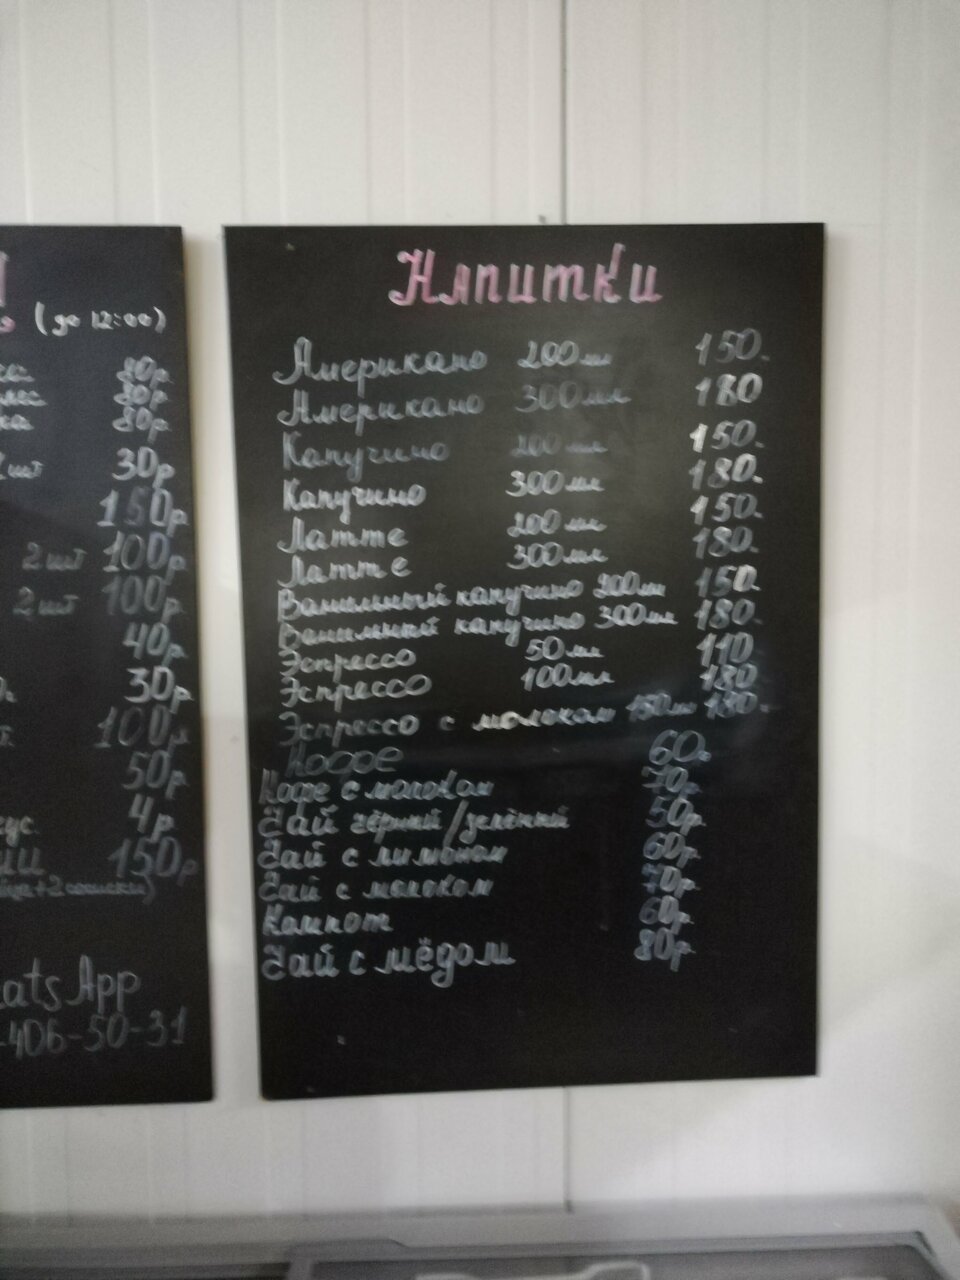 (до 12:00)
80р
80р
80р
шт 30р
150р
2шт 100р
2шт 100р
40р
30р
100р
50р
4р
150р
+2 сосиски)
atsApp
-406-50-31
Напитки
Американо 200мл 150.
Американо 300мл 180
Капучино 200мл 150.
Капучино 300мл 180.
Латте 200мл 150.
Латте 300мл 180.
Ванильный капучино 200мл 150.
Ванильный капучино 300мл 180.
Эспрессо 50мл 110
Эспрессо 100мл 180
Эспрессо с молоком 150мл 180.
Кофе 60.
Кофе с молоком 70р.
Чай чёрный/зелёный 50р.
Чай с лимоном 60р.
Чай с молоком 70р.
Компот 60р.
Чай с мёдом 80р.